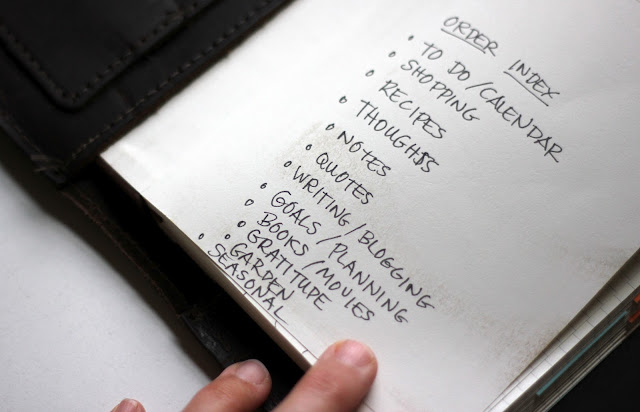 ORDER INDEX
TO DO/CALENDAR
SHOPPING
RECIPES
THOUGHTS
NOTES
QUOTES
WRITING/BLOGGING
GOALS/PLANNING
BOOKS/MOVIES
GRATITUDE
GARDEN
SEASONAL